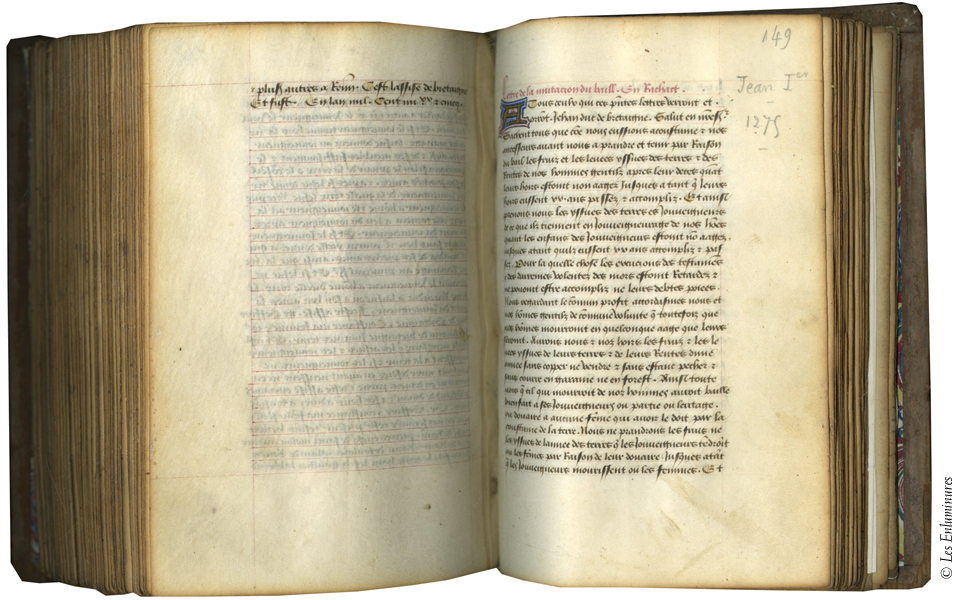 & plus̄ autres a Renn̄. Cest lassise de bretaigne
Et fust. En lan mil. Cent
149
Jean Ier
1275
Lettre de la mutacion du baill. En Rachact.
A Tous ceulx qui ces pn̄tes lettres verront et
orront. Jehan duc de bretaigne. Salut en
Sachent tous que cōe nous eussions acoustume & nos
ancesseurs avant nous a prandre et tenir par Raison
du bail les fruiz et les levees yssues des terres & des
Rentes de nos hommes gentilz apres leur deces quāt
leurs hoirs estoint non aagez Jusques a tant q̄ leurs
hoirs eussent xx. ans passez & accompliz. Et aussi
prenons nous les yssues des terres es Jouveigneurs
de ce que ilz tiennent en Jouveigneurage de nos hōes
quant les enfans des Jouveigneurs estoint nō aagez
Jusques atant quilz eussent xx ans accompliz & pas
sez. Pour la quelle chose les execucions des testamens
& des darrenes volentez des mors estoint Retardez &
ne povoint estre accompliz ne leurs debtes poiees.
Nous regardant le cōmun profit accordasmes nous et
nos hōmes gentilz de cōmune volunte q̄ toutesfoiz que
nos hōmes mourront en quelconque aage que leurs
seront. Aurons nous & noz hoirs les fruiz & les le
vees yssues de leurs terres & de leurs Rentes dune
annee sans copper ne vendre & sans estanc pecher &
sans courre en garanne ne en forest. Ainsi toute
voies q̄ si cil qui mourroit de noz hommes avoit baille
bienfait a ses Jouveigneurs ou partie ou heritage.
ne douaire a aucune fēme qui avoir le doit par la
coustume de la terre. Nous ne prandrons les fruiz ne
les yssues de lannee des terres q̄ les Jouveigneurs tēdroit
ou les fēmes par Raison de leur douaire Jusques atāt
q̄ les Jouveigneurs mourissent ou les femmes. Et
© Les Enluminures